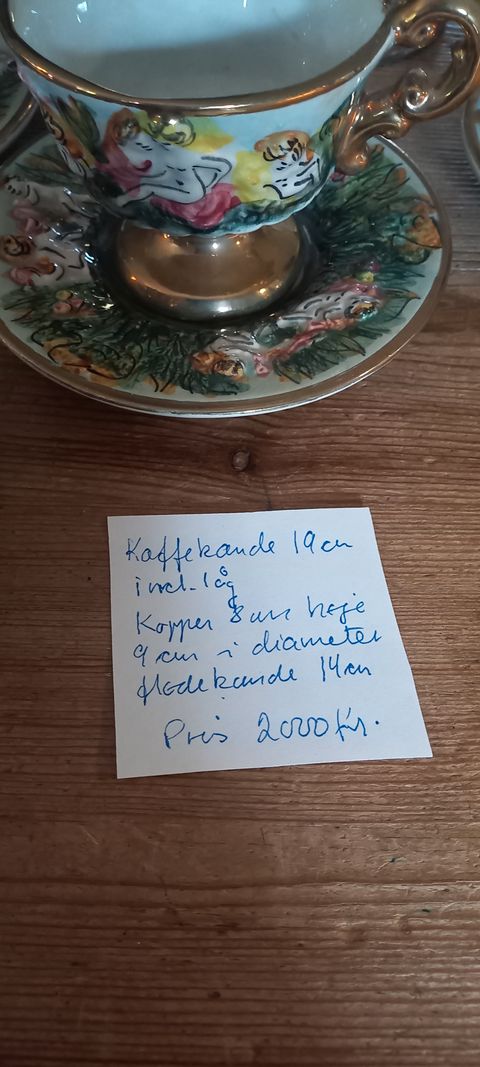 Kaffekande 19 cm
incl. låg
Kopper 8 cm høje
9 cm i diameter
flødekande 14 cm
Pris 2000 kr.